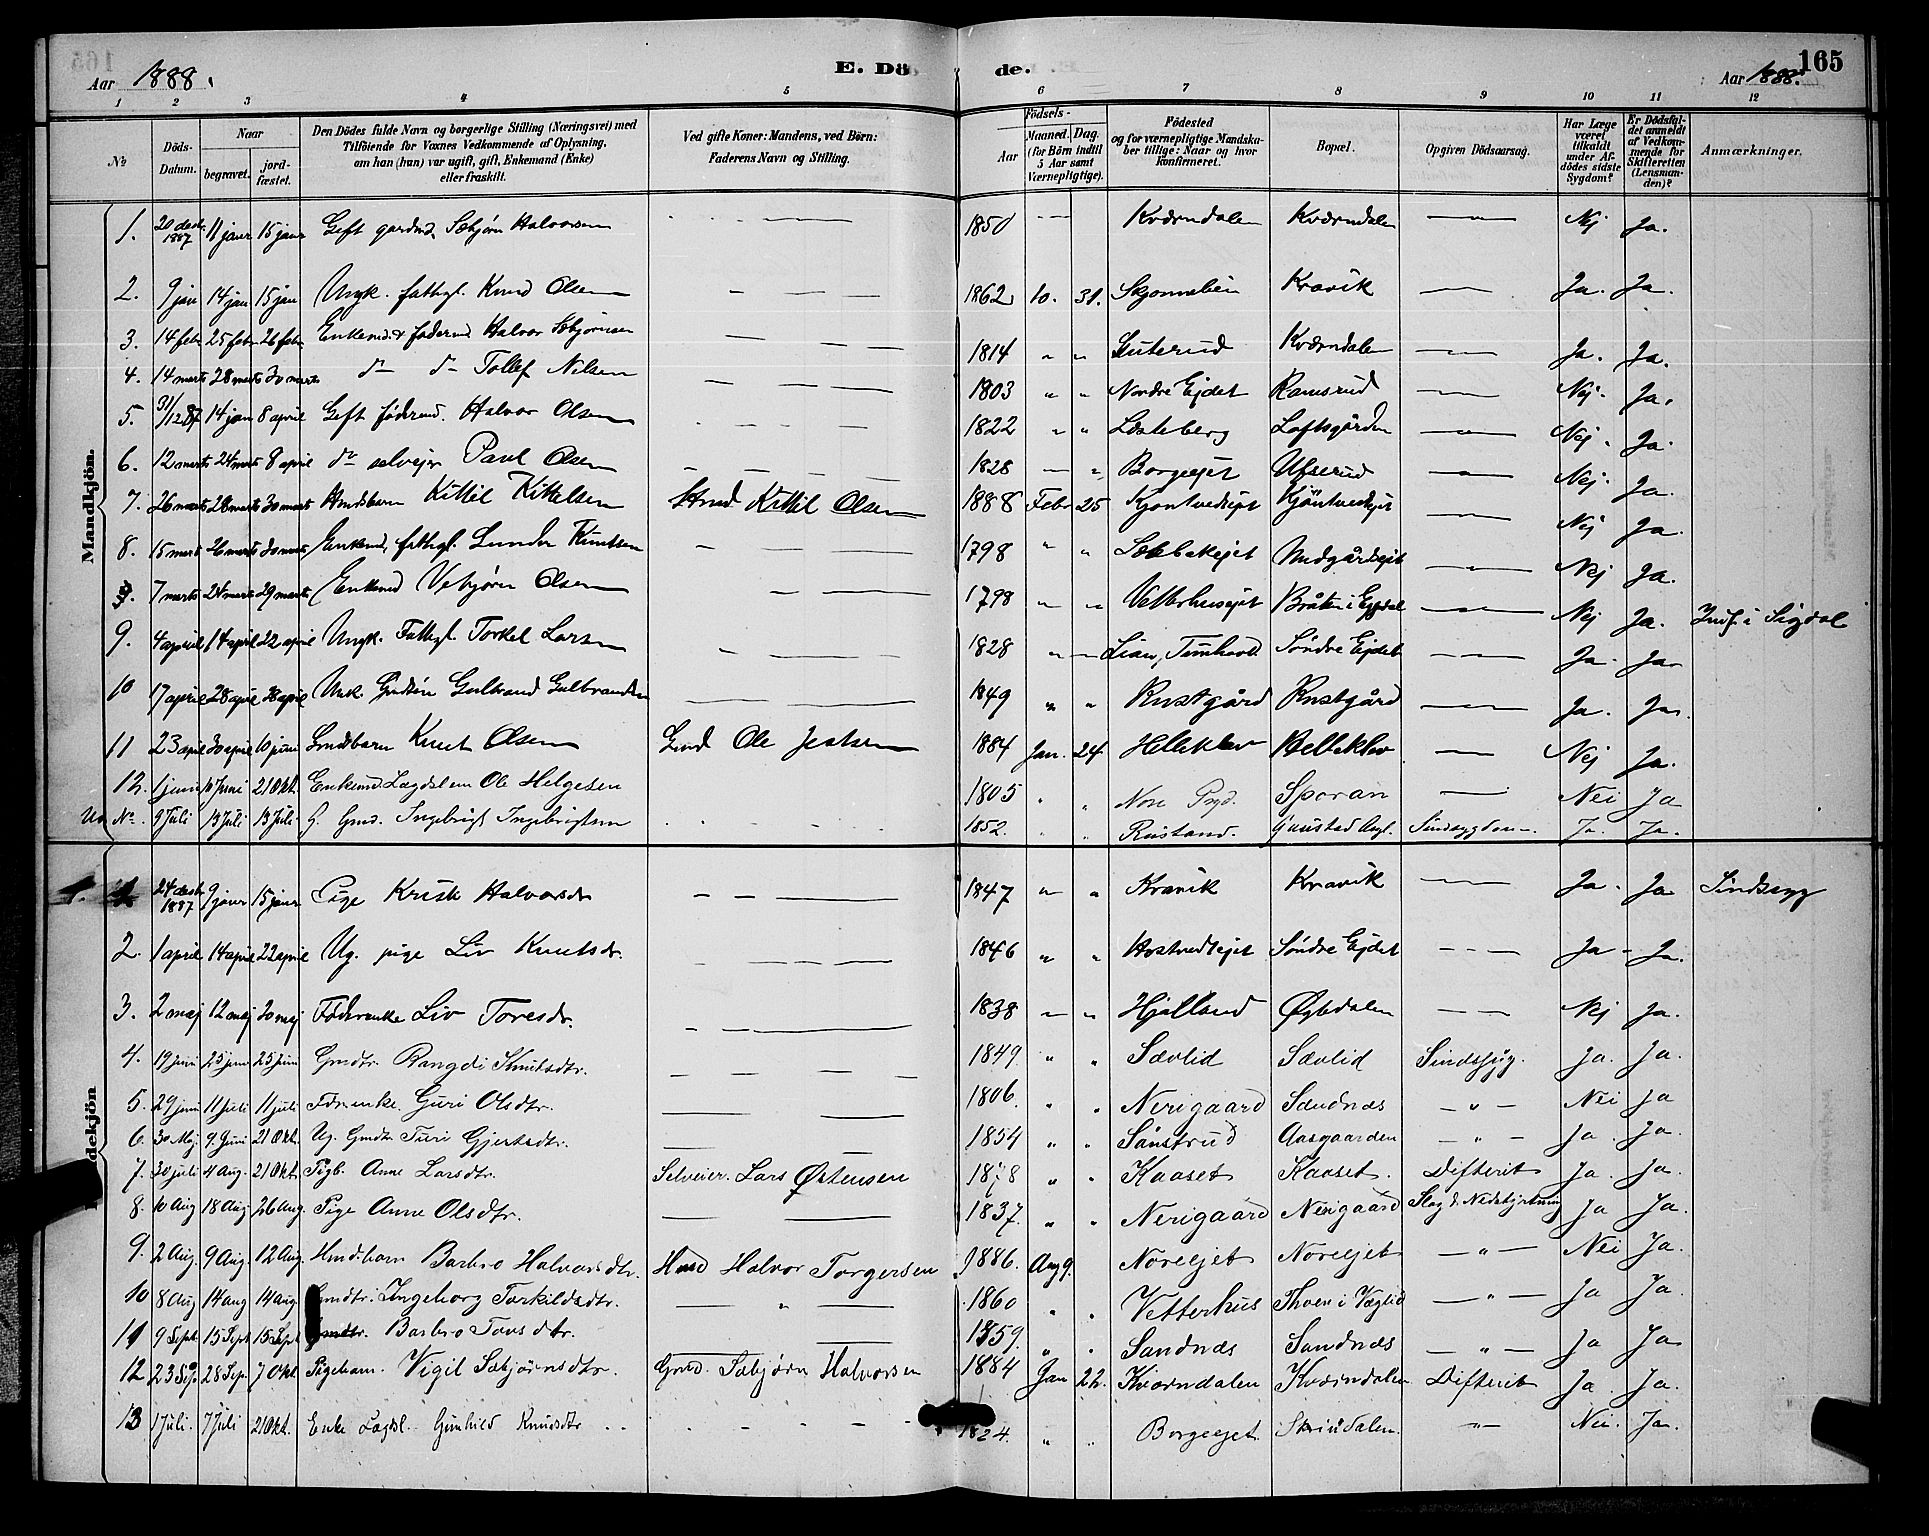 165
Aar 1888.
E. Dö de.
Aar 1888.
1 2 3 4 5 6 7 8 9 10 11 12
No Döds-Datum. Naar begravet. jordfæstet. Den Dödes fulde Navn og borgerlige Stilling (Næringsvei) med Tilföiende for Voxnes Vedkommende af Oplysning, om han (hun) var ugift, gift, Enkemand (Enke) eller fraskilt. Ved gifte Koner: Mandens, ved Börn: Faderens Navn og Stilling. Födsels- Aar Maaned. Dag. (for Börn indtil 5 Aar samt Værnepligtige). Födested og for værnepligtige Mandskaber tillige: Naar og hvor konfirmeret. Bopæl. Opgiven Dödsaarsag. Har Læge været tilkaldt under Afdödes sidste Sygdom? Er Dödsfaldet anmeldt af Vedkommende for Skifteretten (Lensmanden)? Anmærkninger.
Mandkjön.
1. 20 decbr 1887 11 janr 15 janr Gift gardmd. Sebjørn Halvorsen 1850 Kværndalen Kværndalen Nej Ja.
2. 9 jan 14 jan 15 jan Ungk. fattigl. Knud Olsen 1862 10. 31. Skjønnebein Kravik Ja. Ja.
3. 14 febr 25 febr 26 febr Enkemd. & føderaad Halvor Sebjørnsen 1814 " " Guterud Kværndalen Ja. Ja.
4. 14 marts 28 marts 30 marts do do Tollef Nilsen 1803 " " Nordre Ejdet Ramsrud Nej. Ja.
5. 31/12 87 14 jan 8 april Gift føderaad. Halvor Olsen 1822 " " Løsteberg Loftsgården Nej. Ja.
6. 12 marts 24 marts 8 april do selvejer Paul Olsen 1828 " Borgeejet Ufserud Nej Ja.
7. 26 marts 28 marts 30 marts Hmdsbarn Kittil Kittelsen Hmd Kittil Olsen 1888 Febr 25 Kjøntvedtejet Kjöntvedtejet Nej Ja.
8. 15 marts 26 marts 30 marts Enkemd, fattigl. Gunder Knutsen 1798 " " Sebbekejet Nedgårdsejet Nej Ja.
9. 7 marts 24 marts 29 marts Enkemd Vebjørn Olsen 1798 " " Vetterhusejet Bråten i Eggedal Nej Ja. Indf. i Sigdal
9. 4 april 14 april 22 april Ungk. Fattigl. Torkel Larsen 1828 " Lian, Tunhovd. Søndre Ejdet Ja. Ja.
10 17 april 28 april 28 april Unk. Gmdsøn Gulbrand Gulbrandsen 1849 " " Rustgård Rustgård Ja. Ja.
11 23 april 30 april 10 juni Gmdsbarn Knut Olsen Gmd Ole Jostsen 1884 Jan. 24. Helleklev Helleklev Nej Ja.
12. 1 juni 10 Juni 21 Okt. Enkemd. Lægdslem Ole Helgesen 1805 " " Nore Prgd. Sporan Nei Ja
No. 9 Juli 13 Juli 13 Juli G. Gmd. Ingebrigt Ingebrigtsen 1852. " " Rustand. Gaustad Asyl. Sindsygdom Ja. Ja.
Kvindekjön
1. 24 decbr 1887 9 janr 15 janr Pige Kristi Halvorsdr 1847 " " Kravik Kravik Ja. Ja Sindssyg
2. 1 april 14 april 22 april Ug. pige Liv Knutsdr. 1846 " " Hostvedtejet Søndre Ejdet Ja Ja.
3. 2 maj 12 maj 20 maj Føderenke Liv Toresdr. 1838 " Hjelland Øybdalen Nej Ja.
4. 19 juni 25 juni 25 juni Gmdtr. Rangdi Knutsdtr. 1849. " " Sævlid Sævlid Sindssyg. Ja. Ja.
5. 29 juni 11 juli 11 juli Fdrenke. Guri Olsdtr. 1806. " " Nerigaard Sandnæs Nei Ja
6. 30 Maj 9. Juni 21 Okt. Ug. Gmdtr Turi Gjertsdtr. 1854 " " Sønstrud Aasgaarden Ja. Ja.
7. 30 juli 4 Aug. 21 Okt. Pigb. Anne Larsdtr. Selveier. Lars Østensen 1878 " " Kaaset Kaaset. Difterit Ja. Ja.
8. 10 Aug 18 Aug 26 Aug. Pige Anne Olsdtr. 1837. " " Nerigaard Nerigaard Ja Ja.
9. 2 Aug. 9 Aug 12 Aug. Hmdsbarn Barbro Halvorsdtr. Hmd Halvor Torgersen 1886. Aug 9. Noreejet Noreejet Nei Ja.
10 8 Aug 14 aug 14 aug Gmdtr. Ingeborg Torkildsdtr. 1860 " " Vetterhus Thoen i Væglid Ja Ja.
11 9 Sept. 15 Sept 15 Sept Gmdtr. Barbro Torsdtr. 1859. " " Sandnæs Sandnæs Ja Ja
12 23 Sep. 28 Sep. 7 Okt Pigebarn. Vigil Sebjørnsdtr. Gmd. Sebjørn Halvorsen 1884 Jan 22. Kværndalen Kværndalen Difterit Ja Ja.
13 1 Juli. 7 Juli 21 Okt. Enke Lægdsl. Gunhild Knudsdtr 1824. " " Borgeejet. Skrindalen. Nei. Ja.